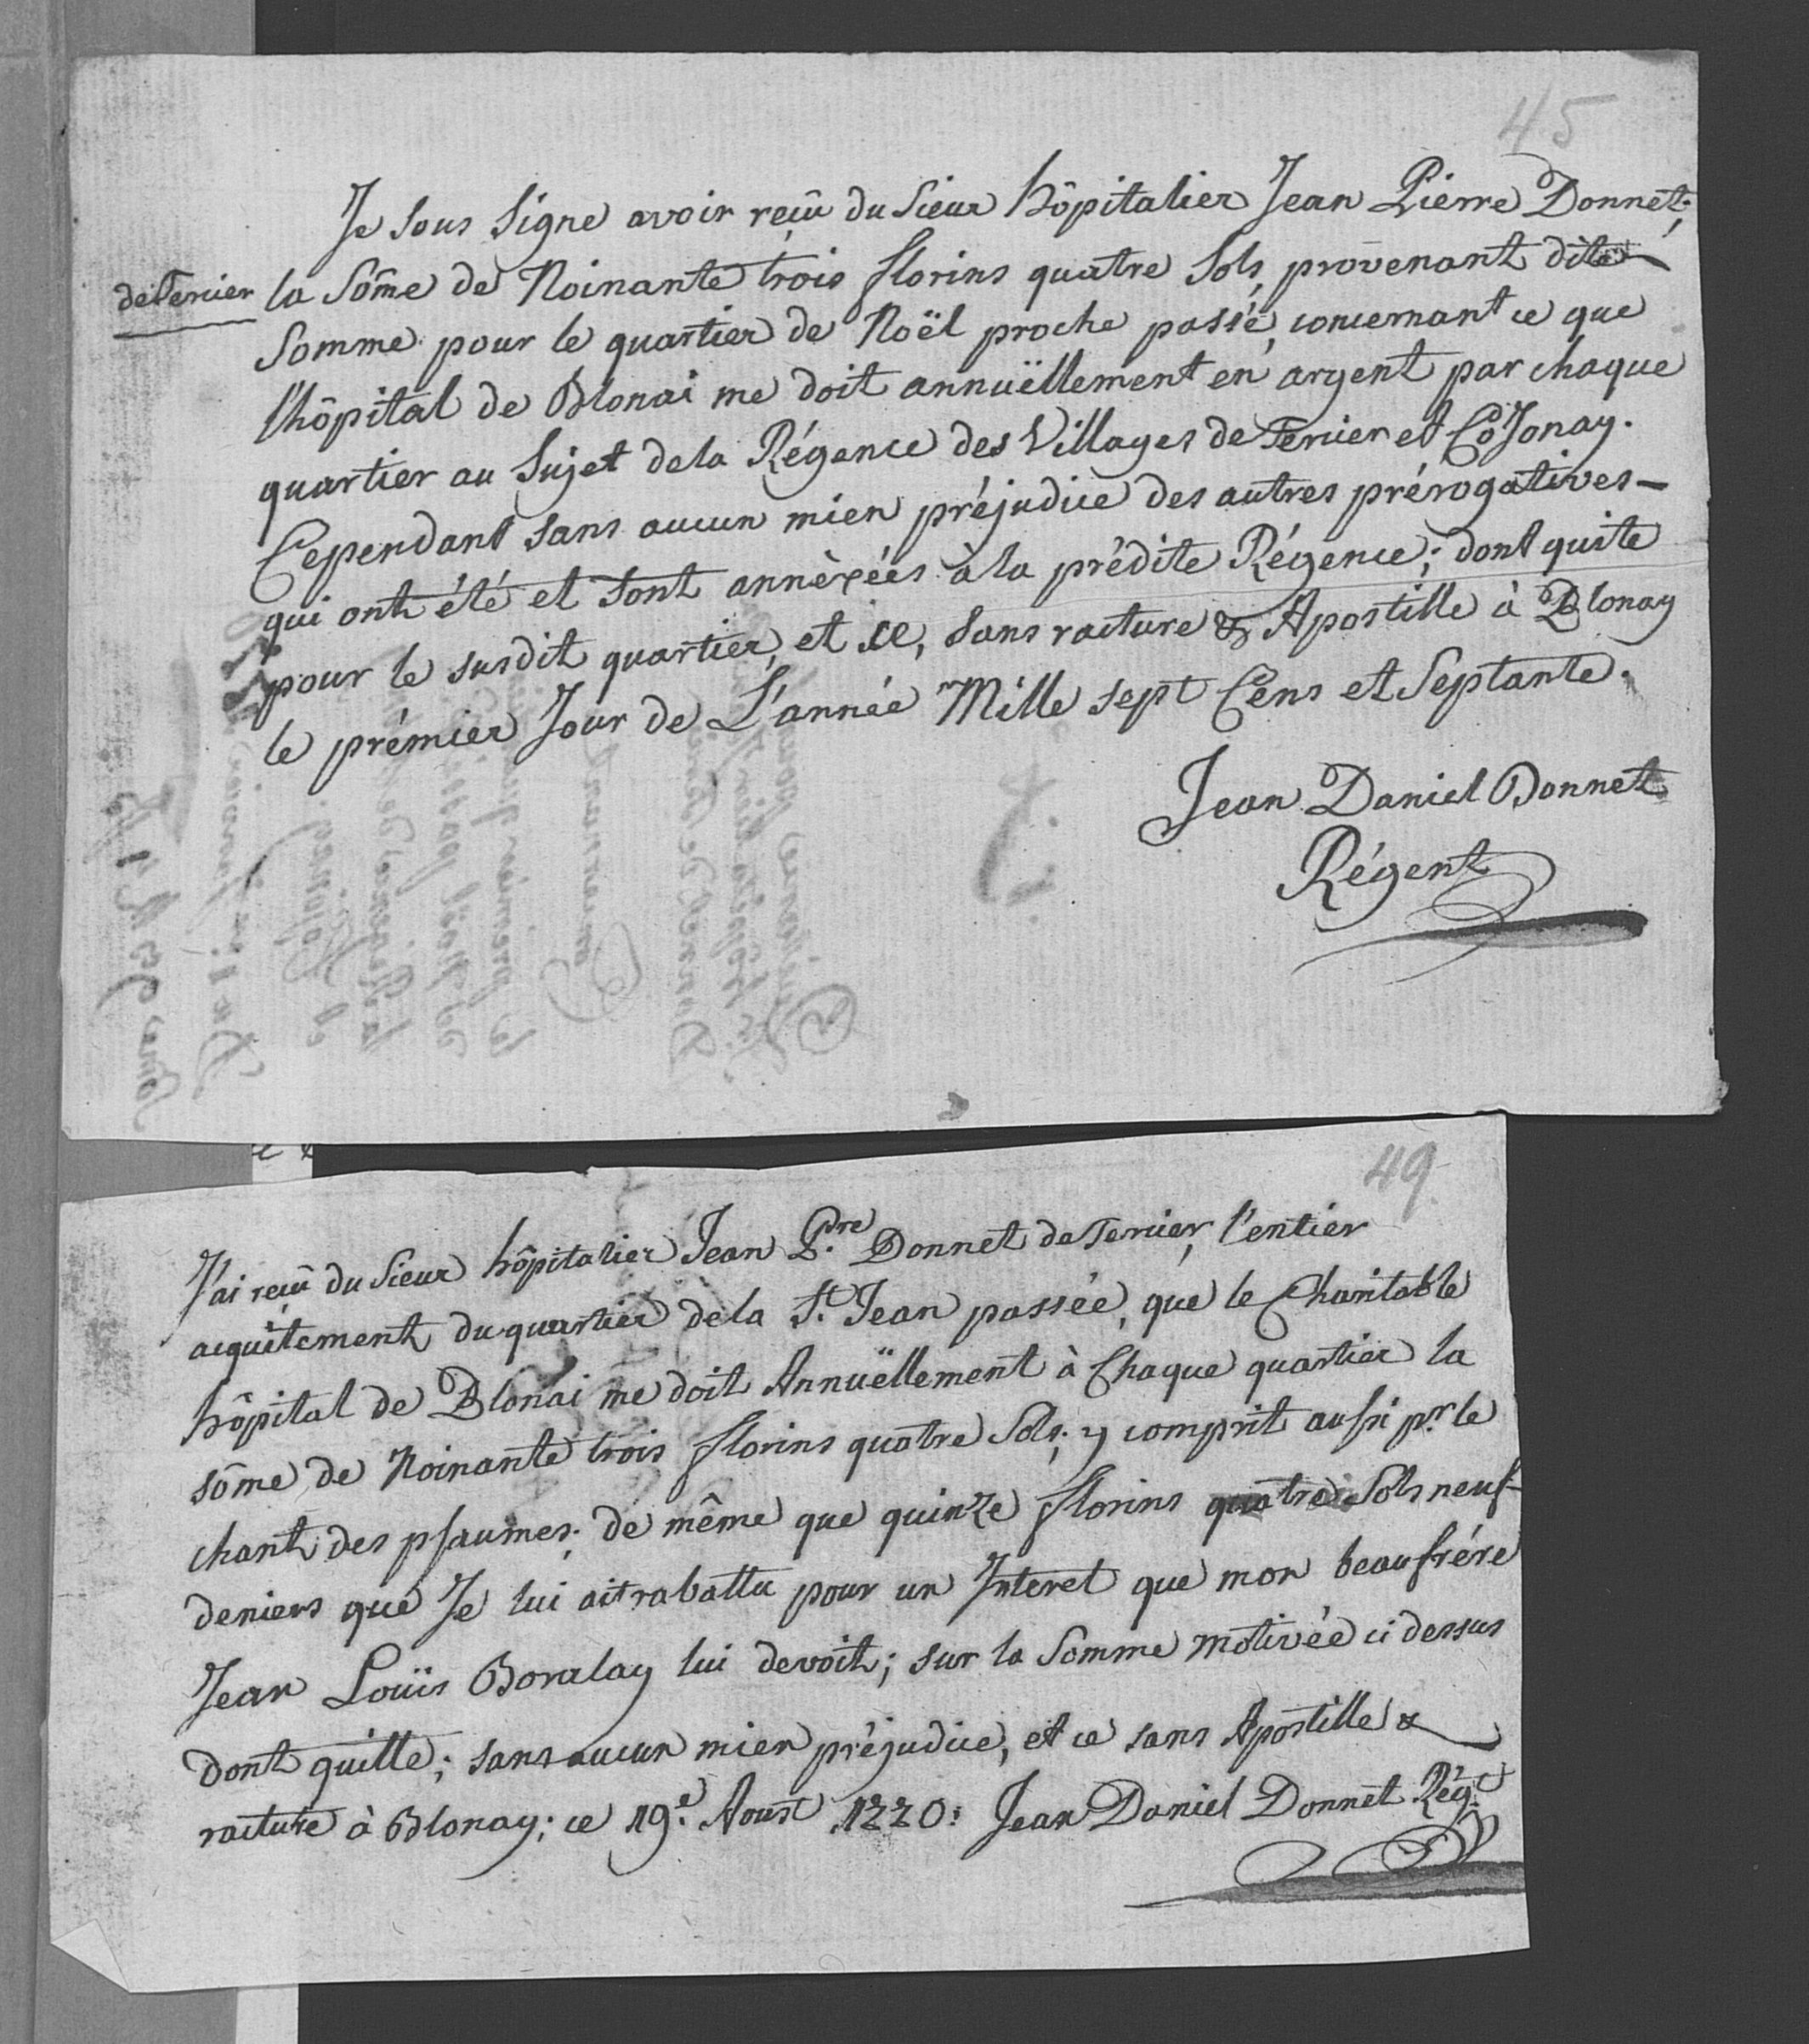 45
Je sous signe avoir reçû du sieur hôpitalier Jean Pierre Donnet;
de Tercier
la sôme de Noinante trois florins quatre sols, provenant dite
somme pour le quartier de Noël proche passé, concernant ce que
l'hôpital de Blonai me doit annuëllement en argent par chaque
quartier au sujet de la Régence des Villages de Tercier et Cojonay.
Cependant sans aucun mien préjudice des autres prérogatives
qui ont été et sont annèxées à la prédite Régence; dont quite
pour le susdit quartier, et ce, sans rature & Apostille à Blonay
le prémier Jour de L'année Mille sept Cens et Septante.
Jean Daniel Donnet
Régent
49
J'ai reçû du sieur hôpitalier Jean P.re Donnet de Tercier, l'entier
acquitement du quartier de la St. Jean passée, que le Charitable
hôpital de Blonai me doit Annuëllement à Chaque quartier la
sôme de Noinante trois florins quatre sols; y comprit aussi pr. le
chant des psaumes; de même que quinze florins quatre sols neuf
deniers que Je lui ait rabattu pour un Interet que mon beaufrére
Jean Louïs Boralay lui devoit; sur la somme motivée ci dessus
dont quitte; sans aucun mien préjudice, et ce sans Apostille &
rature à Blonay; ce 19.e Aoust 1770: Jean Daniel Donnet Rég.t